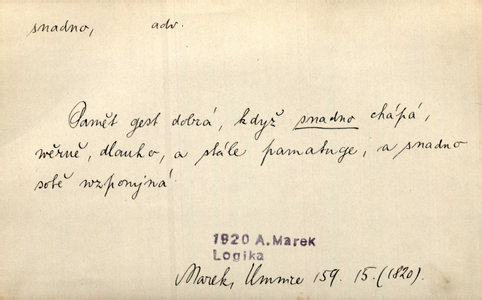 snadno, adv.
Paměť gest dobrá, když snadno chápá,
wěrně, dlauho, a stále pamatuge, a snadno
sobě wzpomjná.
1820 A. Marek
Logika
Marek, Umnice 159. 15. (1820).